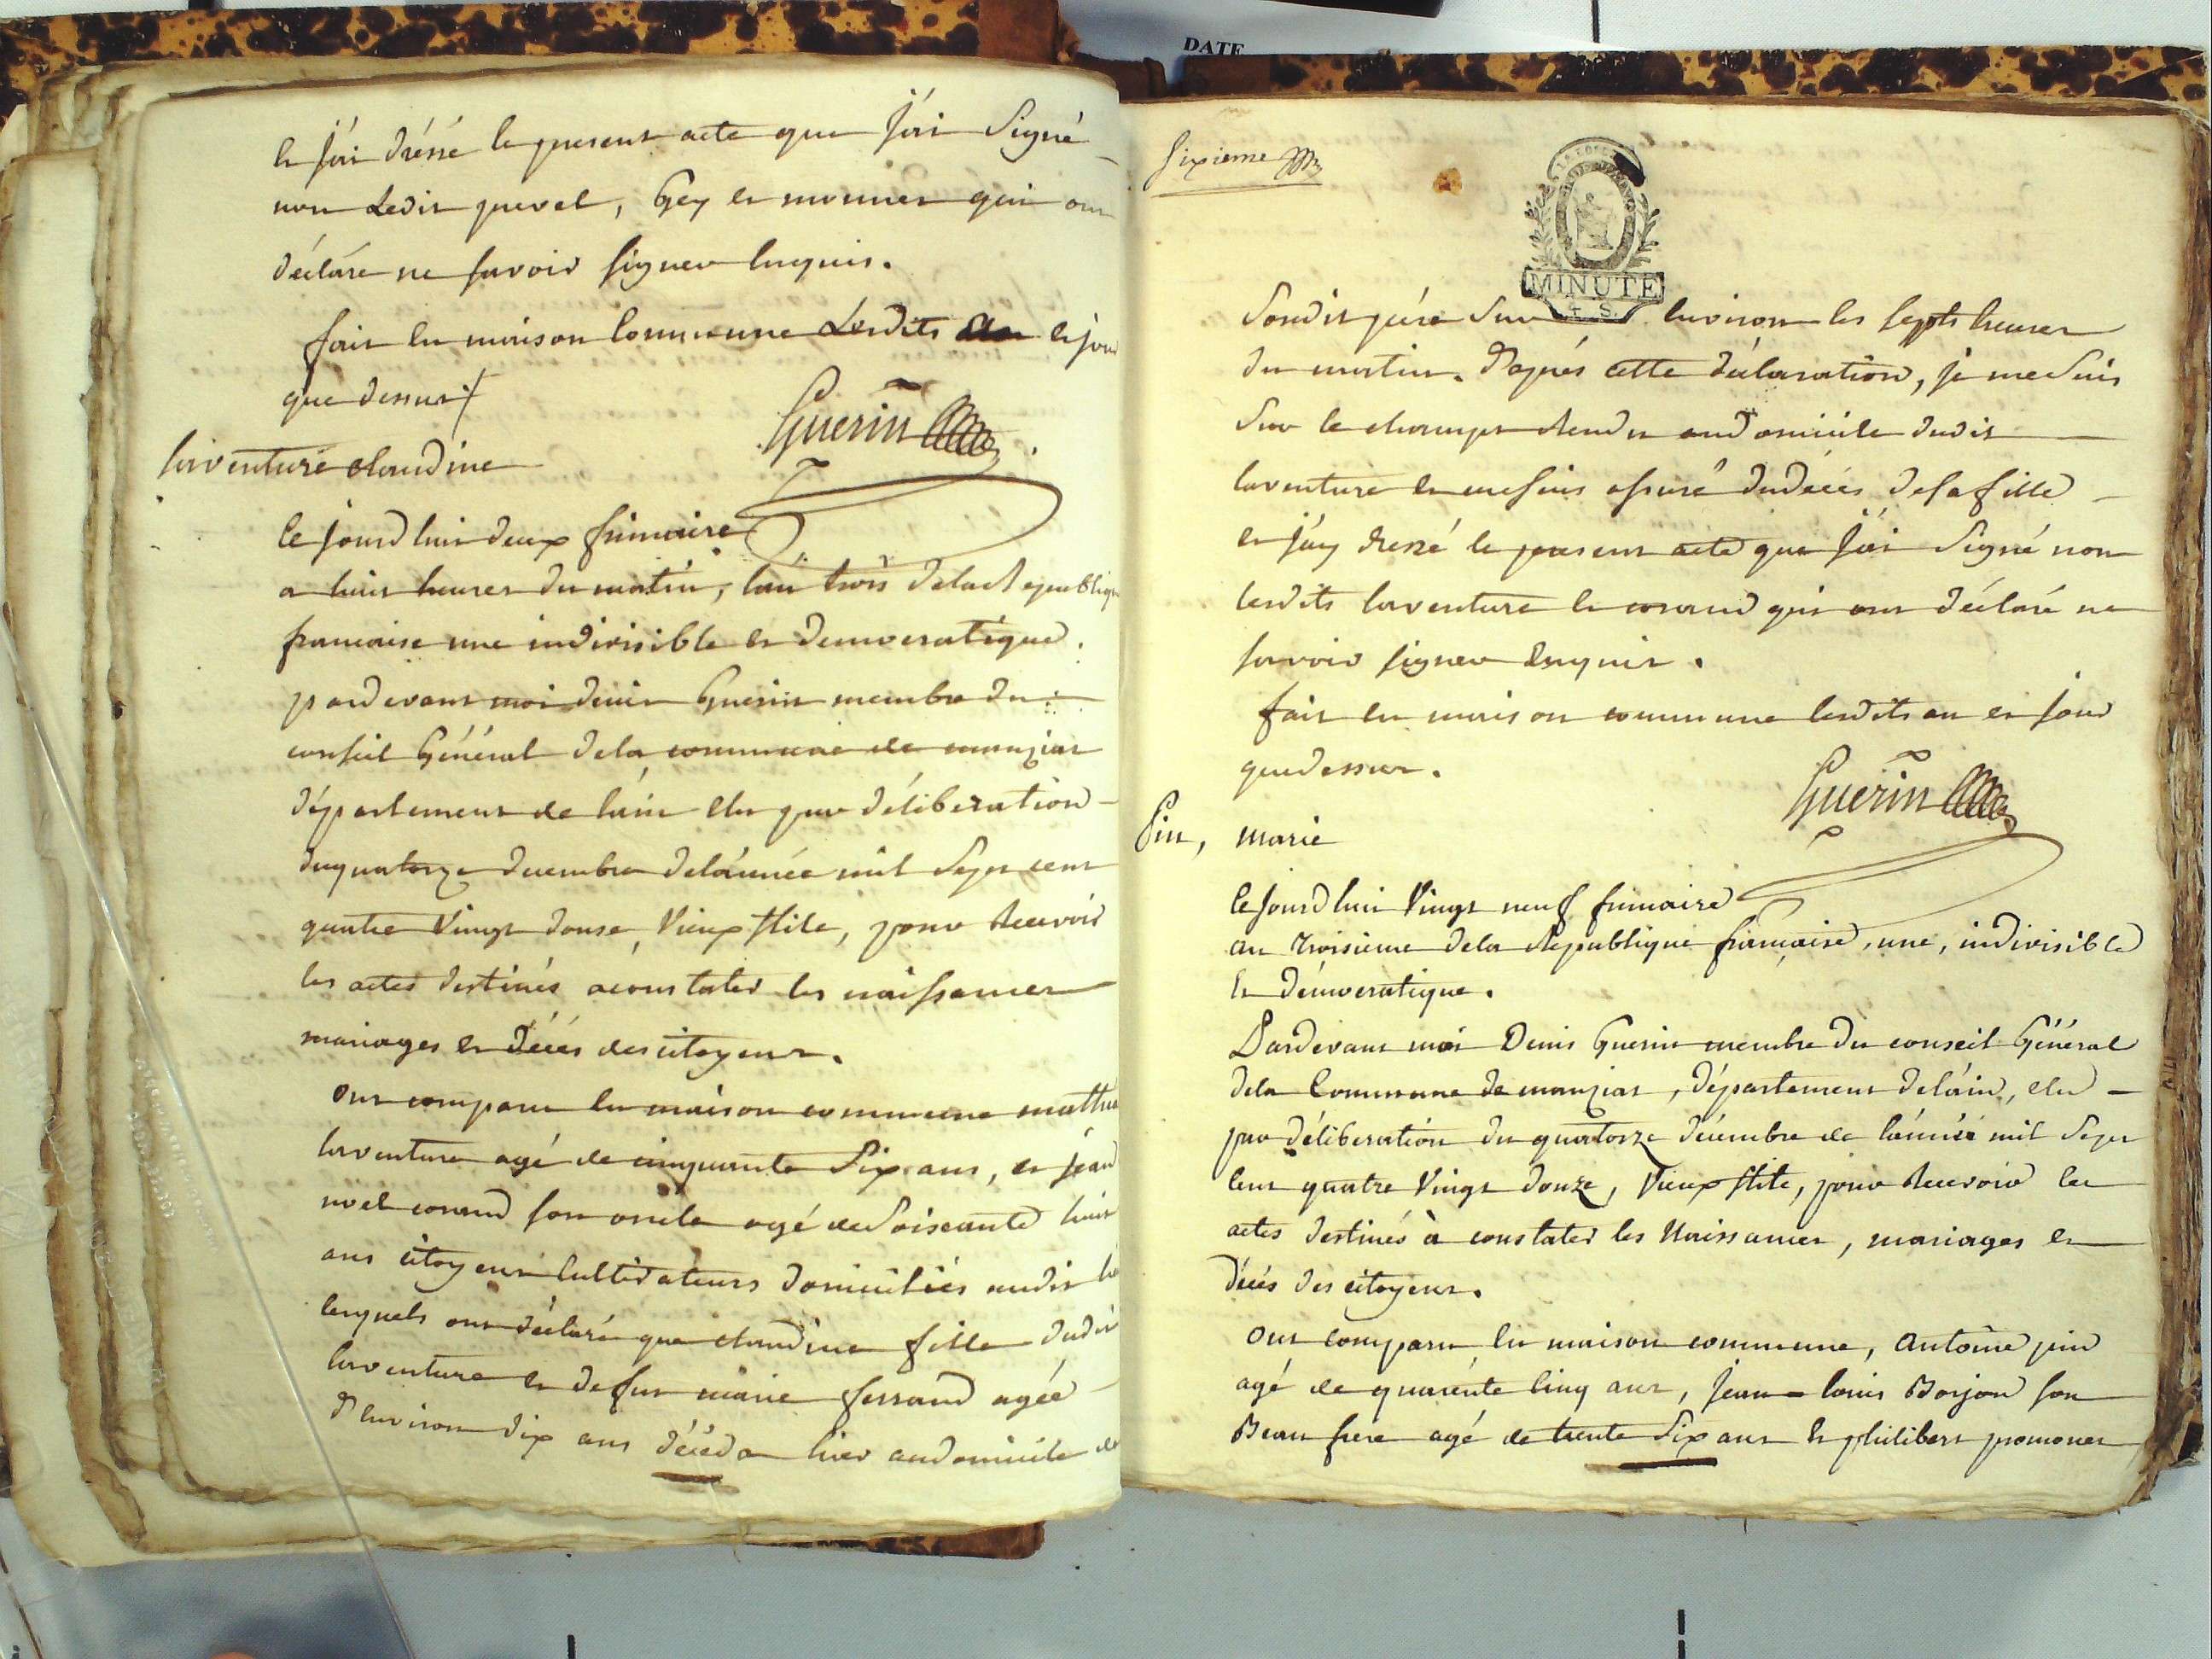 et j'ai dréssé le present acte que j'ai Signé
non Ledit prevel, Gey et monnier qui on
déclaré ne savoir signer enquis.
fait en maison Commune Lesdits an et jour
que dessus
Guerin
laventure claudine
Ce jourdhui deux frimaire
a huit heures du matin, l'an trois delaRepublique
francaise une indivisible et Democratique.
pardevant moi denis Guerin membre du
conseil Général dela commune de manziat
département de l'ain elu par déliberation
duquatorze decembre delánnée mil Sept cent
quatre Vingt douse, Vieux stile, pour Recevoir
les actes destinés aconstater les naissances
mariages et décés des citoyens.
ont comparu en maison commune mathieu
laventure agé de cinquante Six ans, et jean
noel corand son oncle agé deSoisante huit
ans citoyens Cultivateurs domiciliés audit
lesquels ont déclaré que claudine fille dudit
laventure et defut marie ferrand agée
d'Environ dix ans décéda hier audomicile de
DATE
Sixieme
MINUTE
4 S.
Sondit pére Sur Environ les septs heures
du matin. D'aprés cette déclaration, je me Suis
Sur le champs Rendu audomicile dudit
laventure et mesuis assuré dudécés desafille
et j'ay dressé le present acte que j'ai Signé non
lesdits laventure et corand qui ont déclaré ne
savoir signer Enquis.
fait en maison commune lesdits an et jour
quedessus.
Guerin
Pin, marie
Cejourdhui Vingt neuf frimaire
an troisieme dela Republique francaise, une, indivisible
Et Démocratique.
Pardevant moi Denis Guerin membre du conseil Général
dela Commune de manziat, département deláin, elu
par déliberation du quatorze décembre de lánnée mil Sept
Cent quatre Vingt douze, Vieux stile, pour Recevoir les
actes destinés à constater les Naissances, mariages et
décés des citoyens.
ont Comparu en maison commune, Antoine pin
agé de quarente Cinq ans, Jean-louis Borjon son
Beau frere agé de trente Six ans et philibert promonet